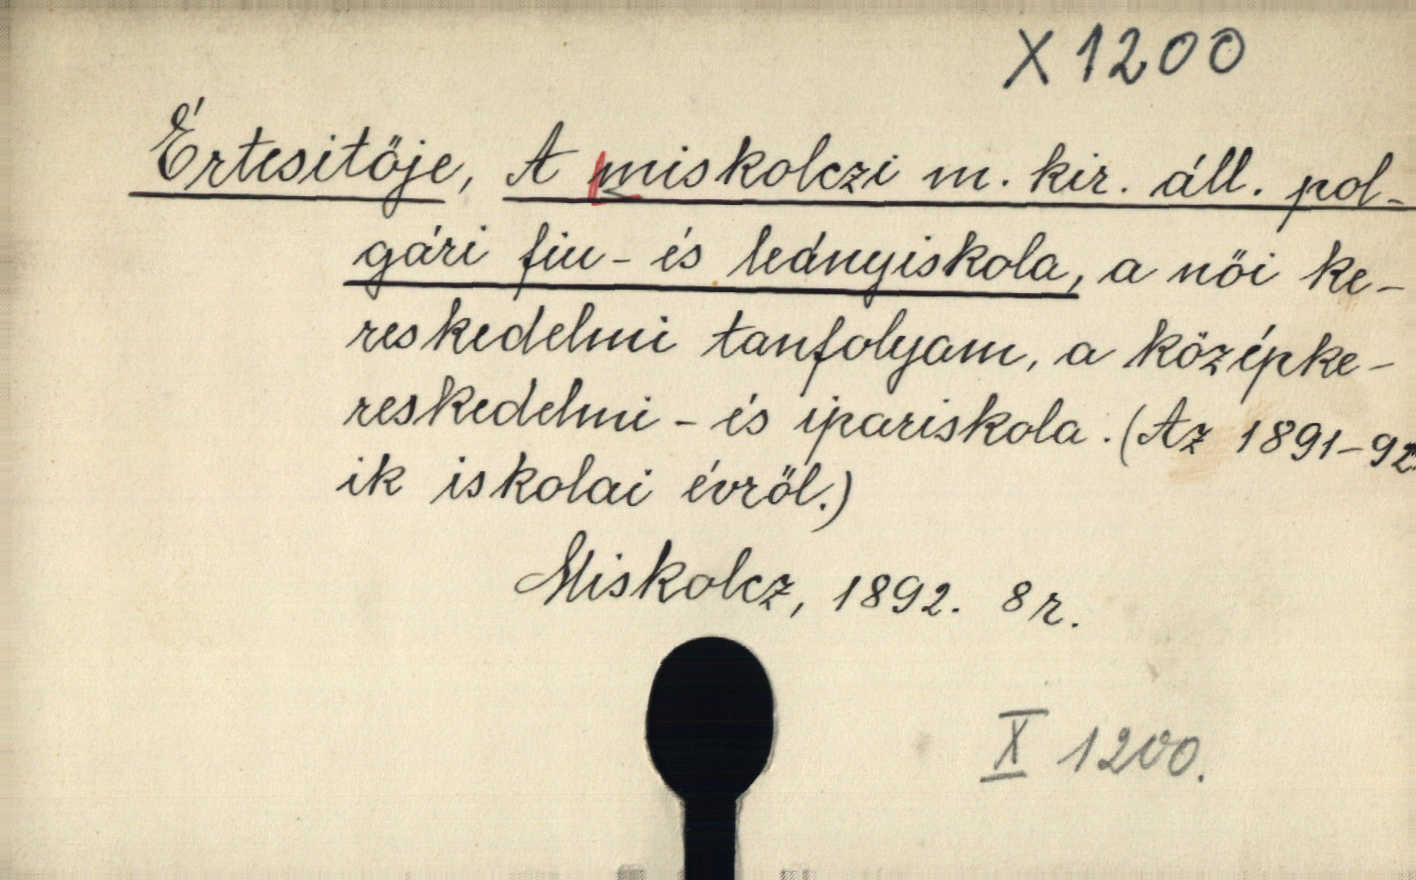 X 1200
Értesitöje, A miskolczi m. kir. áll. pol-
gári fiu - és leányiskola, a nöi ke-
reskedelmi tanfolyam, a középke-
reskedelmi - és ipariskola. (Az 1891-92.
ik iskolai évröl.)
Miskolcz, 1892. 8r.
X 1200.